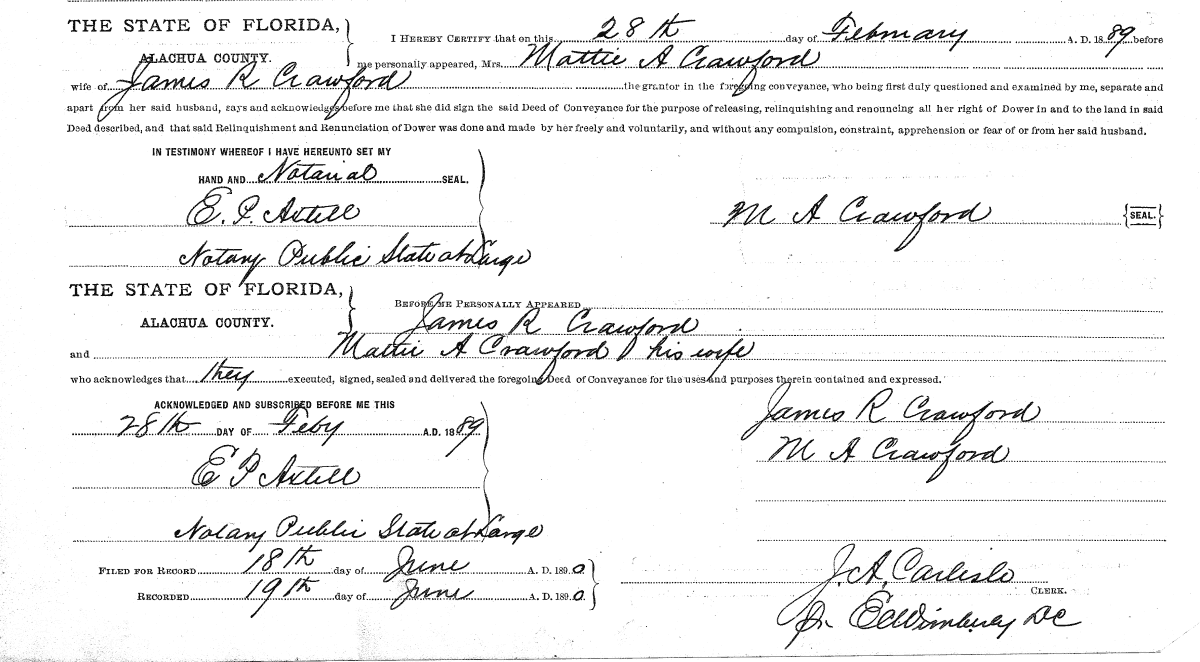 THE STATE OF FLORIDA,
I HEREBY CERTIFY that on this 28th day of February A. D. 1889 before
ALACHUA COUNTY.
me personally appeared, Mrs. Mattie A Crawford
wife of James R Crawford the grantor in the foregoing conveyance, who being first duly questioned and examined by me, separate and
apart from her said husband, says and acknowledges before me that she did sign the said Deed of Conveyance for the purpose of releasing, relinquishing and renouncing all her right of Dower in and to the land in said
Deed described, and that said Relinquishment and Renunciation of Dower was done and made by her freely and voluntarily, and without any compulsion, constraint, apprehension or fear of or from her said husband.
IN TESTIMONY WHEREOF I HAVE HEREUNTO SET MY
HAND AND Notarial SEAL.
E. P. Axtell
M A Crawford {SEAL.}
Notary Public State at Large
THE STATE OF FLORIDA,
BEFORE ME PERSONALLY APPEARED
ALACHUA COUNTY.
James R Crawford
and Mattie A Crawford his wife
who acknowledges that they executed, signed, sealed and delivered the foregoing Deed of Conveyance for the uses and purposes therein contained and expressed.
ACKNOWLEDGED AND SUBSCRIBED BEFORE ME THIS
28th DAY OF Feby A.D. 1889
James R Crawford
M A Crawford
E P Axtell
Notary Public State at Large
FILED FOR RECORD 18th day of June A. D. 1890
RECORDED 19th day of June A. D. 1890
J. A. Carlisle
CLERK.
DC